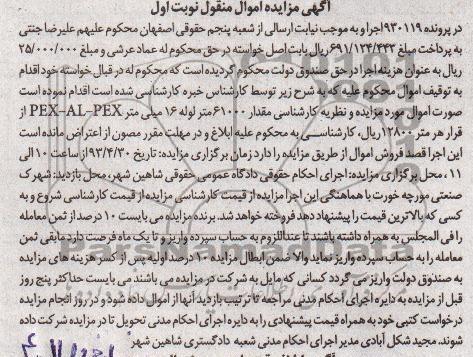 آگهی مزایده اموال منقول نوبت اول
در پرونده ۹۳۰۱۱۹ اجرا و به موجب نیابت ارسالی از شعبه پنجم حقوقی اصفهان محکوم علیهم علیرضا جنتی
به پرداخت مبلغ ۶۹۱/۱۲۴/۴۴۳ ریال بابت اصل خواسته در حق محکوم له عماد عرشی و مبلغ ۲۵/۰۰۰/۰۰۰
ریال به عنوان هزینه اجرا در حق صندوق دولت محکوم گردیده است که محکوم له در قبال خواسته خود اقدام
به توقیف اموال محکوم علیه که به شرح زیر توسط کارشناس خبره کارشناسی شده است اقدام نموده است
صورت اموال مورد مزایده و نظریه کارشناسی مقدار ۶۱۰۰۰ متر لوله ۱۶ میلی متر PEX-AL-PEX از
قرار هر متر ۱۲۸۰۰ ریال، کارشناسی به محکوم علیه ابلاغ و در مهلت مقرر مصون از اعتراض مانده است
این اجرا قصد فروش اموال از طریق مزایده را دارد زمان برگزاری مزایده: تاریخ ۹۳/۴/۳۰ از ساعت ۱۰ الی
۱۱، محل برگزاری مزایده: اجرای احکام حقوقی دادگاه عمومی حقوقی شاهین شهر، محل بازدید: شهرک
صنعتی مورچه خورت با هماهنگی این اجرا مزایده از قیمت کارشناسی مزایده از قیمت کارشناسی شروع و به
کسی که بالاترین قیمت را پیشنهاد دهد فروخته خواهد شد. برنده مزایده می بایست ۱۰ درصد از ثمن معامله
را فی المجلس به همراه داشته باشند تا عنداللزوم به حساب سپرده واریز و تا یک ماه فرصت دارد مابقی ثمن
معامله را به حساب سپرده واریز نماید والا ضمن ابطال مزایده ۱۰ درصد اولیه پس از کسر هزینه های مزایده
به صندوق دولت واریز می گردد کسانی که مایل به شرکت در مزایده می باشند می بایست حداکثر پنج روز
قبل از مزایده به دایره اجرای احکام مدنی مراجعه تا ترتیب بازدید آنها از اموال داده شود و در روز انجام مزایده
درخواست کتبی خود به همراه قیمت پیشنهادی را به دایره اجرای احکام مدنی تحویل تا در مزایده شرکت داده
شوند. مجید شکل آبادی مدیر اجرای احکام مدنی شعبه دادگستری شاهین شهر